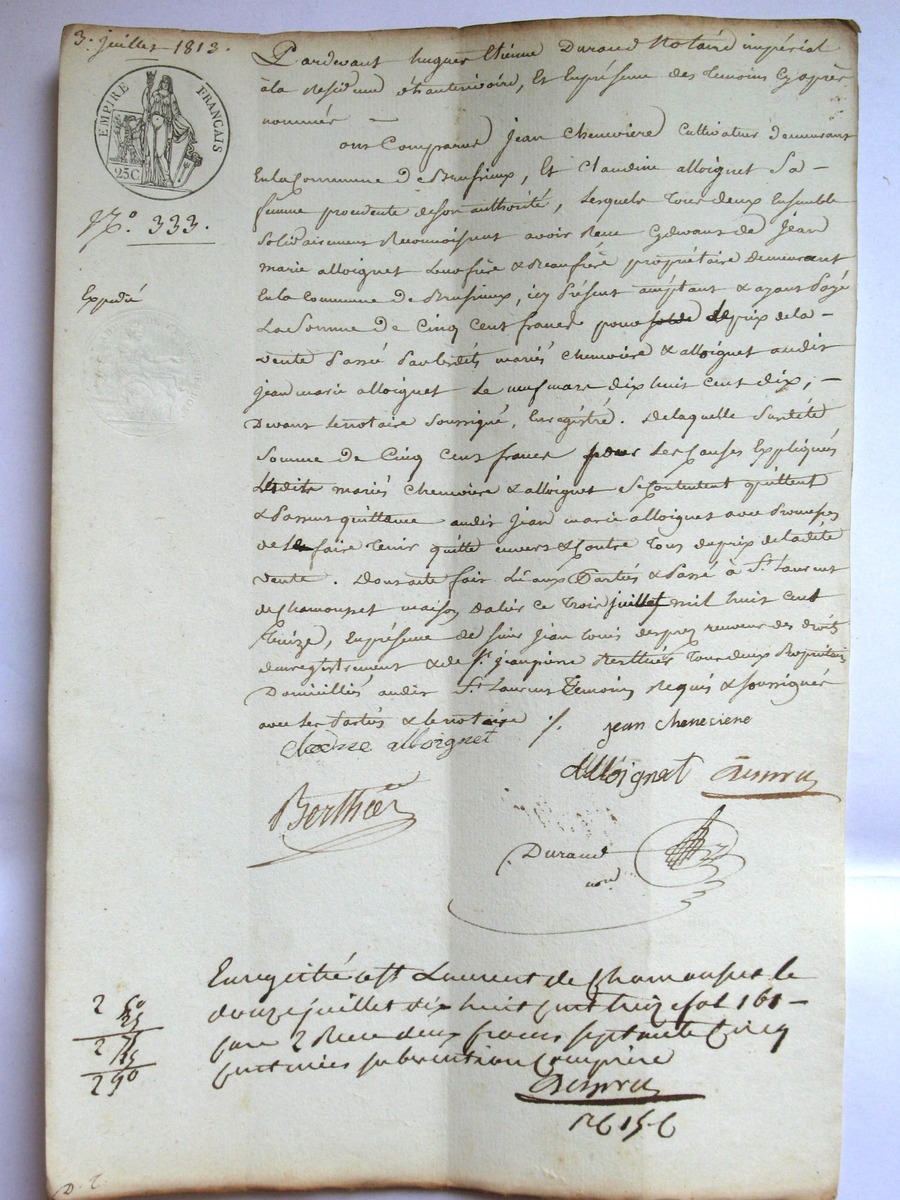 3. juillet 1813.
EMPIRE FRANÇAIS
25 C
N.o 333.
Expedié
Pardevant hugues Etienne Durand Notaire impérial
à la Residence, Et Enpresence des temoins Cy après
nommés
ont Comparus Jean Chenevière Cultivateur demeurant
En la Commune de Brusieux, Et Claudine alloignet Sa -
femme procedente deson authorité, Lesquels tous deux Ensemble
Solidairement Reconnoissent avoir Recu Cydevant de Jean
marie alloignet Leur frère & Beaufrère propriétaire demeurant
En la Commune de Brusieux, icy Présent acceptant & ayant Payé
La Somme de Cinq Cent francs pour solde du prix de la -
vente Passé Par lesdits mariés chenevière & alloignet audit
jean marie alloignet Le neuf mars dix huit cent dix, -
Devant lenotaire Soussigné, Enregistré. De laquelle Susdite
Somme de Cinq Cent francs pour les Causes Expliqués
Lesdits mariés chenevière & alloignet Se Contentent quittent
& Passent quittance audit Jean marie alloignet avec Promesses
de le faire tenir quitte envers & Contre tous du prix de ladite
vente. Dont acte fait Lu aux Partiés & Passé à St. Laurent
de Chamousset maison dalier ce trois juillet mil huit cent
treize, En présence de Jean Louis desprez receveur des droits
denregistrement & de sr. jeanpierre tous deux Propriétaires
Domiciliés audit St. Laurent temoins Requis & soussignés
avec les Partiés & le notaire ./.
jean cheneviere
clodine alloignet
Alloignet
Desprez
Berthier
Durand
not
Enregistré a St Laurent de Chamousset le
douze juillet dix huit cent treize fol 161 -
case 2 Recu deux francs septante Cinq
Centimes subvention Comprise
2 50
25
2 75
15
2 90
Desprez
D. T.